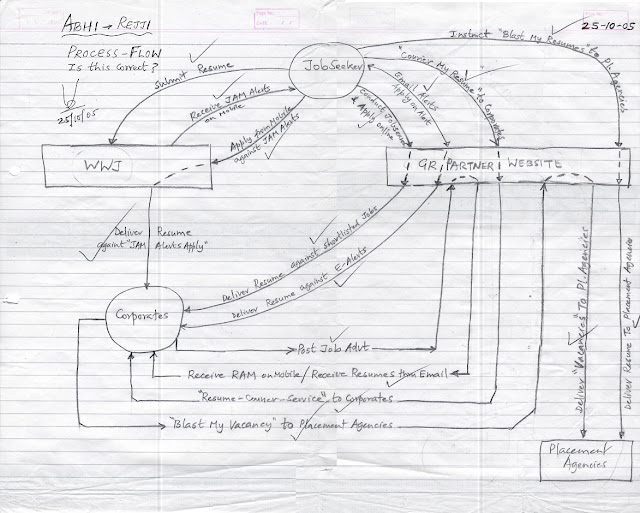 ABHI → REJJI
25-10-05
PROCESS-FLOW
Is this Correct?
25/10/05
Instruct "Blast My Resumes" to Pl. Agencies
JobSeeker
Submit Resume
Receive JAM Alerts
on Mobile
Apply from Mobile
against JAM Alerts
Conduct Jobsearch
& Apply online
Email Alerts
Apply on Alert
"Courier My Resume" to Corporates
WWJ
GR PARTNER WEBSITE
Deliver Resume
against "JAM Alerts Apply"
Deliver Resume against shortlisted Jobs
Deliver Resume against E-Alerts
Deliver "Vacancies" To Pl. Agencies
Deliver Resume To Placement Agencies
Corporates
Post Job Advt
Receive RAM on Mobile / Receive Resumes thru Email
"Resume-Courier-Service" to Corporates
"Blast My Vacancy" to Placement Agencies
Placement
Agencies